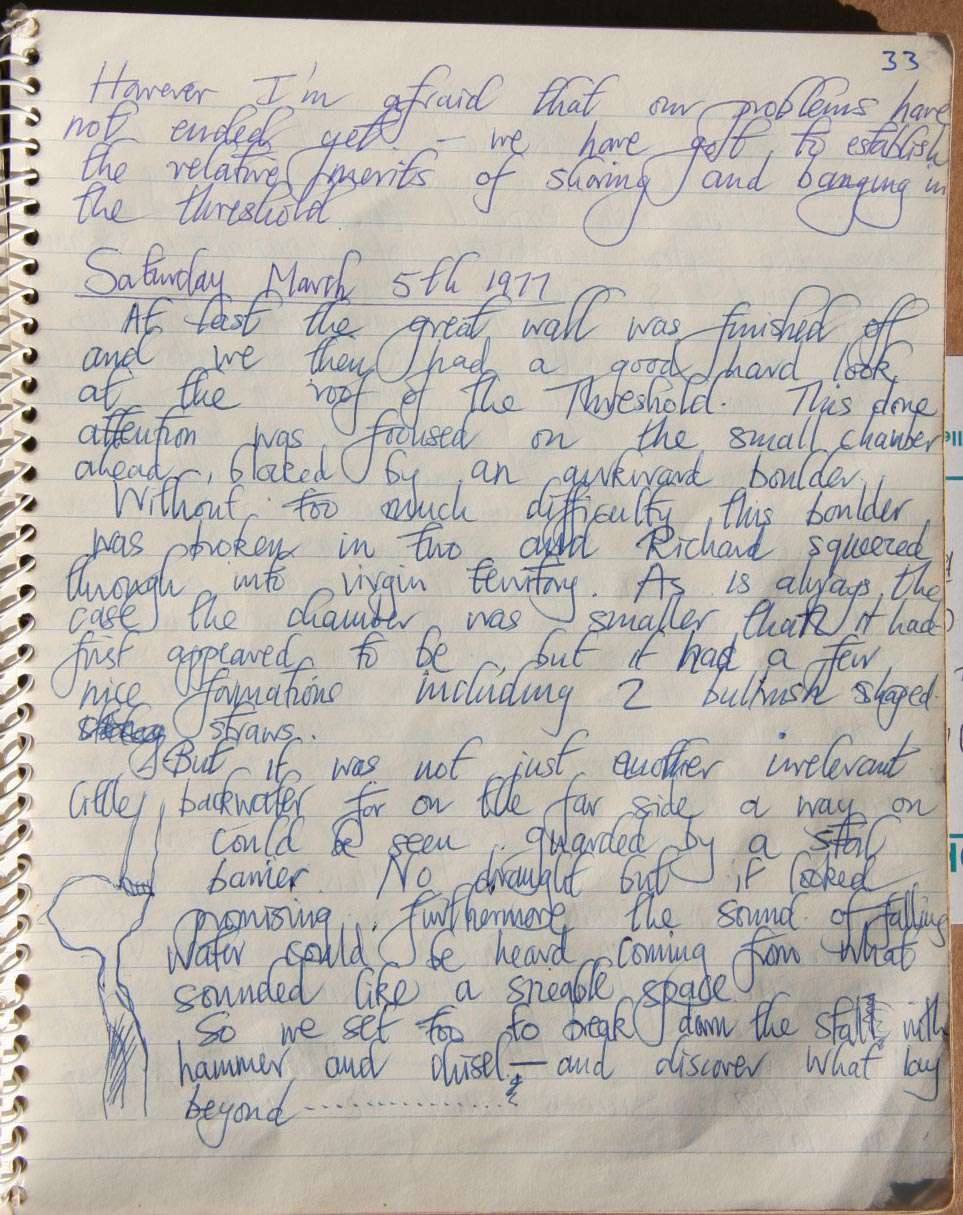 33
However I'm afraid that our problems have
not ended yet. – we have got to establish
the relative merits of shoring and banging in
the threshold
Saturday March 5th 1977
At last the great wall was finished off
and we then had a good hard look
at the roof of the Threshold. This done
attention was focused on the small chamber
ahead, blocked by an awkward boulder.
Without too much difficulty this boulder
was broken in two and Richard squeezed
through into virgin territory. As is always the
case the chamber was smaller than it had
first appeared to be, but it had a few
nice formations including 2 bulrush shaped
straws.
But it was not just another irrelevant
little backwater for on the far side a way on
could be seen guarded by a stal
barrier. No draught but it looked
promising. Furthermore the sound of falling
water could be heard coming from what
sounded like a sizeable space
So we set to to break down the stal with
hammer and chisel – and discover what lay
beyond ...............